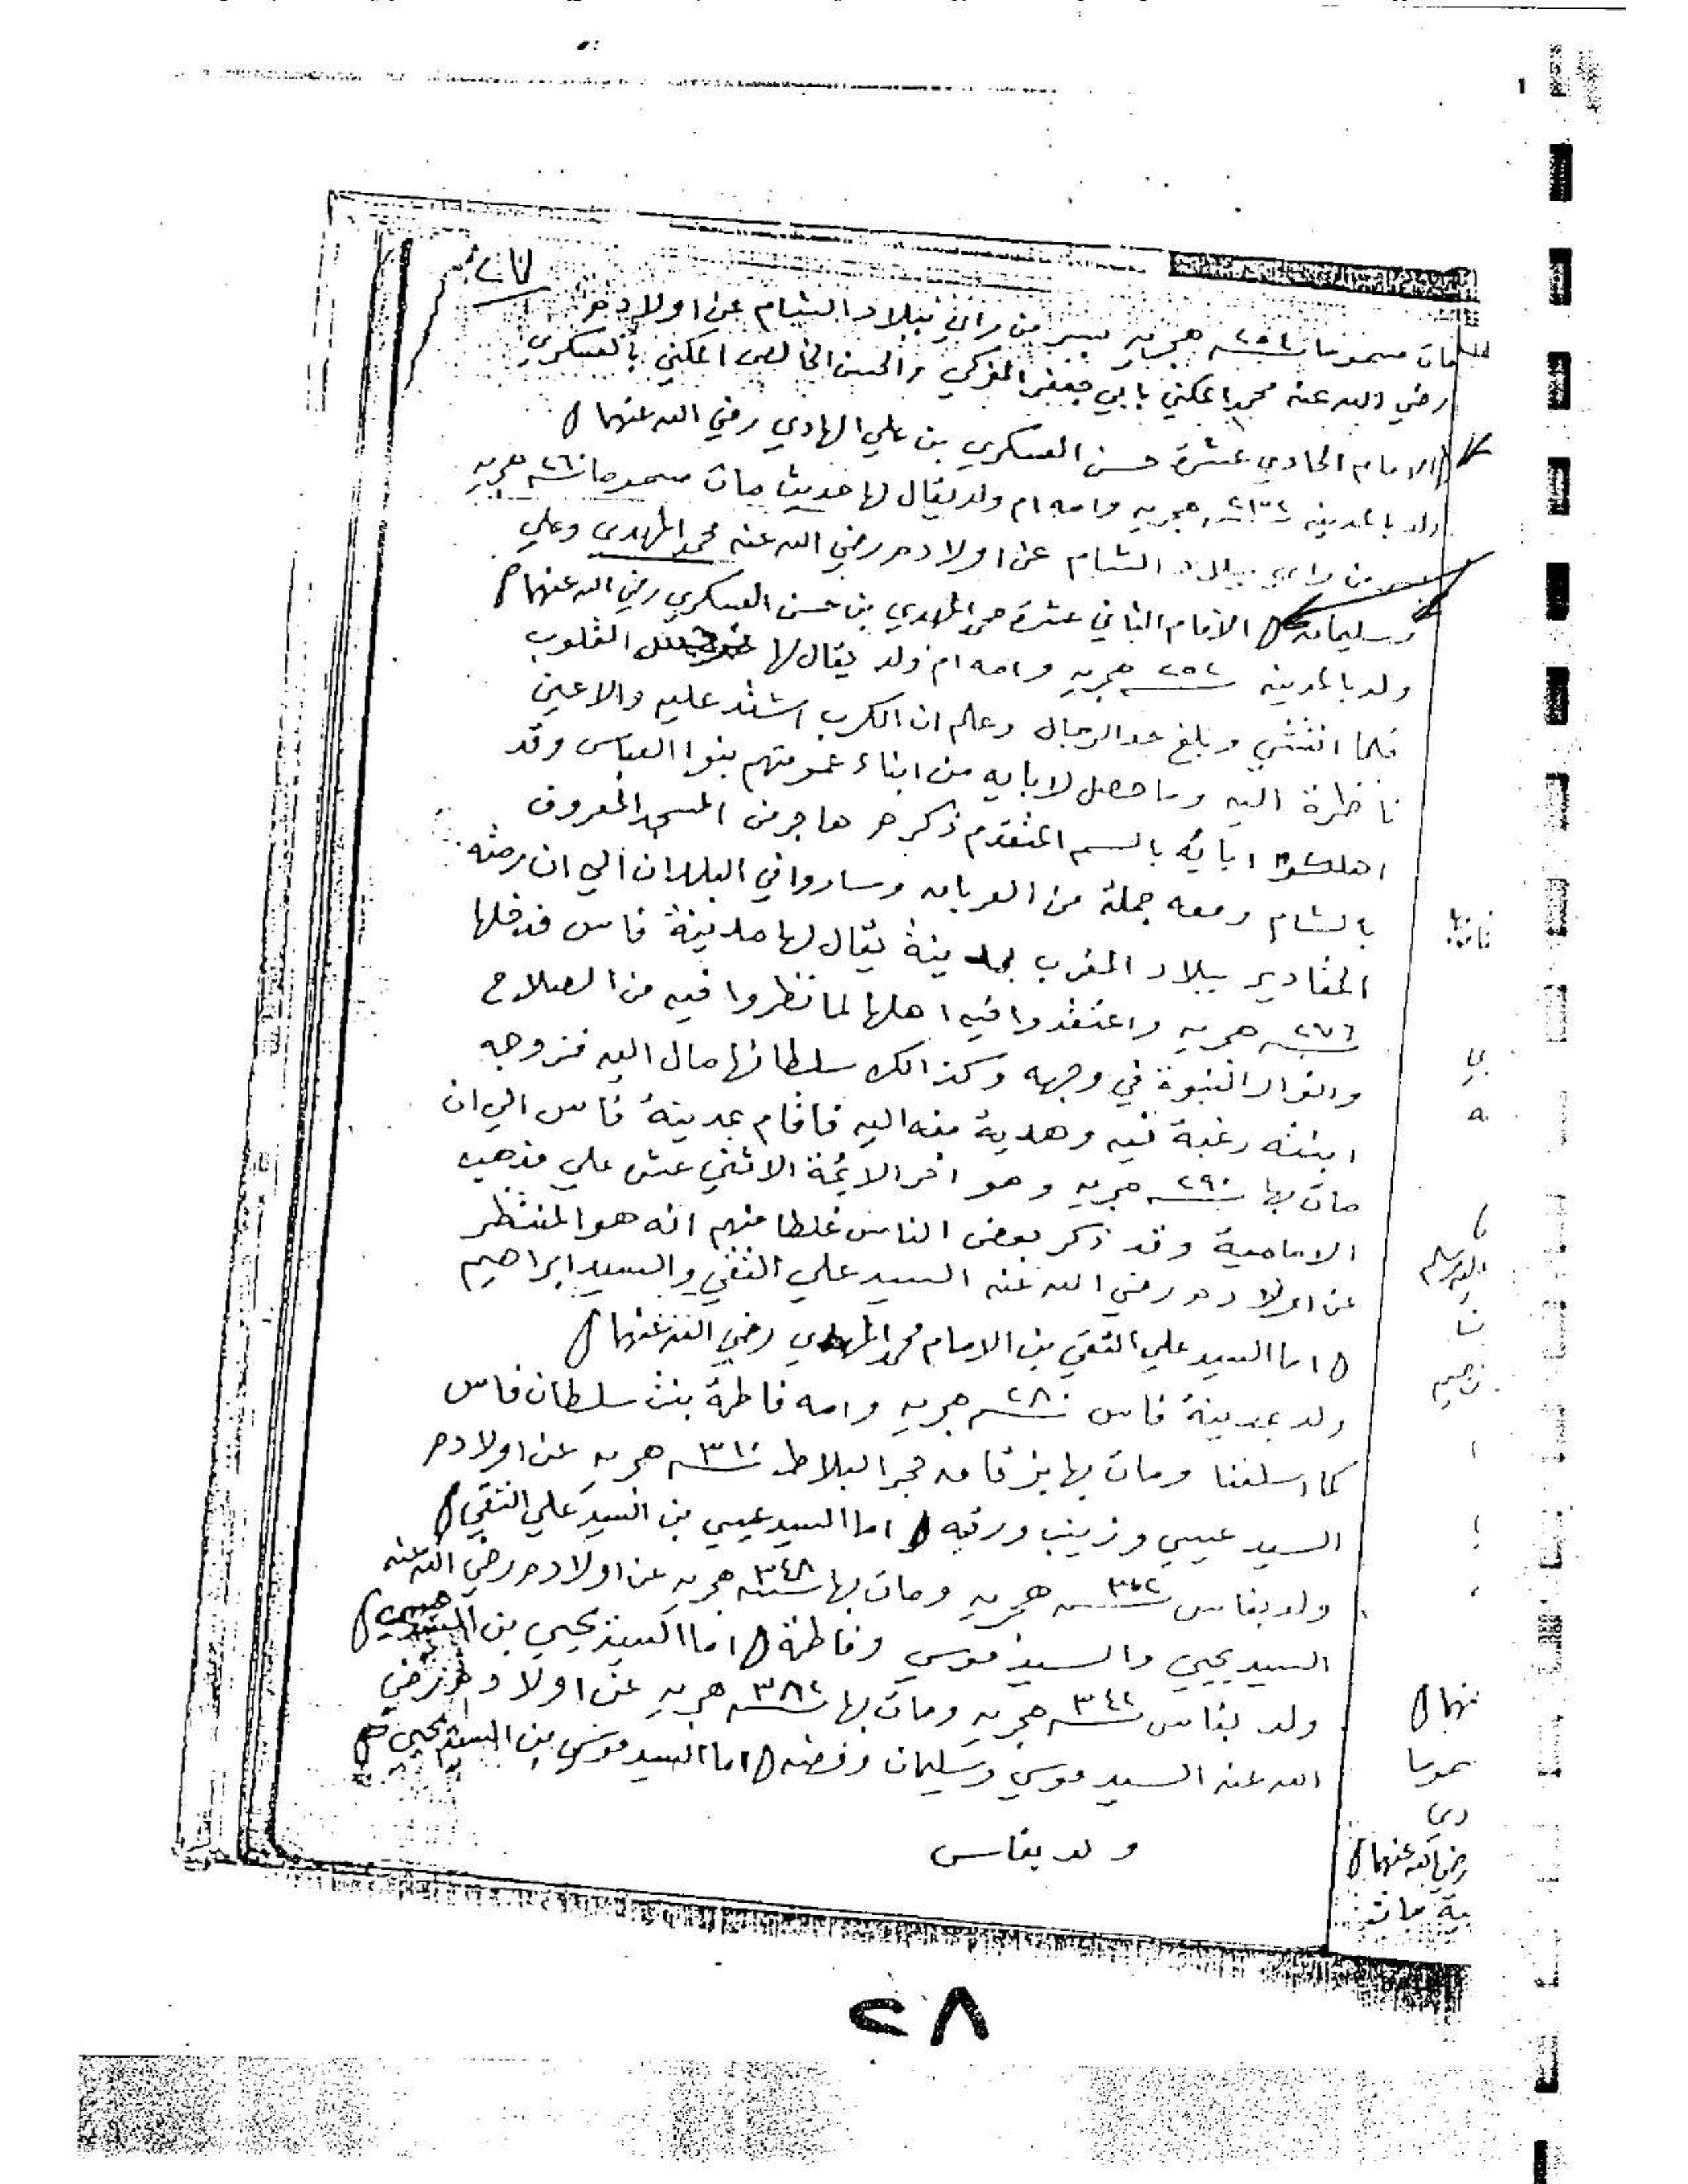 مات مسموما ٢٥٤سنة هجريه بسر من راي ببلاد الشام عن اولاده
رضي الله عنه محمد المكني بابي جعفر المزكي والحسن الخالص المكني بالعسكري
الامام الحادي عشرة حسن العسكري بن علي الهادي رضي الله عنهما
ولد بالمدينه ٢٣٢سنة هجريه وامه ام ولد يقال لها حديث مات مسموما ٢٦٠سنة هجريه
بسر من راي ببلاد الشام عن اولاده رضي الله عنه محمد المهدي وعلي
وسليمان الامام الثاني عشرة محمد المهدي بن حسن العسكري رضي الله عنهما
ولد بالمدينه ٢٥٢سنة هجريه وامه ام ولد يقال لها القلوب
فلما انتشي وبلغ حد الرجال وعلم ان الكرب اشتد عليه والاعين
ناظرة اليه وما حصل لابايه من ابناء عمومتهم بنوا العباس وقد
اهلكوا ابائه بالسم المتقدم ذكره هاجر من المسجد المعروف
بالشام ومعه جملة من العربان وساروا في البلدان الي ان رمته
المقادير ببلاد المغرب بمدينة يقال لها مدينة فاس فدخلها
٢٧٦سنة هجريه واعتقدوا فيه اهلها لما نظروا فيه من الصلاح
وانوار النبوة في وجهه وكذالك سلطانها مال اليه فزوجه
ابنته رغبة فيه وهدية منه اليه فاقام بمدينة فاس الي ان
مات بها ٢٩٠سنة هجريه وهو اخر الائمة الاثني عشر علي مذهب
الامامية وقد ذكر بعض الناس غلطا منهم انه هو المنتظر
عن اولاده رضي الله عنه السيد علي التقي والسيد ابراهيم
اما السيد علي التقي بن الامام محمد المهدي رضي الله عنهما
ولد بمدينة فاس ٢٨٠سنة هجريه وامه فاطمة بنت سلطان فاس
كما اسلفنا ومات بها بزقاق حجر البلاط ٣١٠سنة هجريه عن اولاده
السيد عيسي وزينب ورقيه اما السيد عيسي بن السيد علي التقي
ولد بفاس هجريه ومات بها ٣٤٨سنة هجريه عن اولاده رضي الله عنه
السيد يحيي والسيد موسي وفاطمة اما السيد يحيي بن السيد
ولد بفاس ٣٤٢سنة هجريه ومات بها ٣٨٢سنة هجريه عن اولاده رضي
الله عنه السيد موسي وسليمان وفضه اما السيد موسي بن السيد يحيي
ولد بفاس
نهما
رضي الله عنهما
٢٨